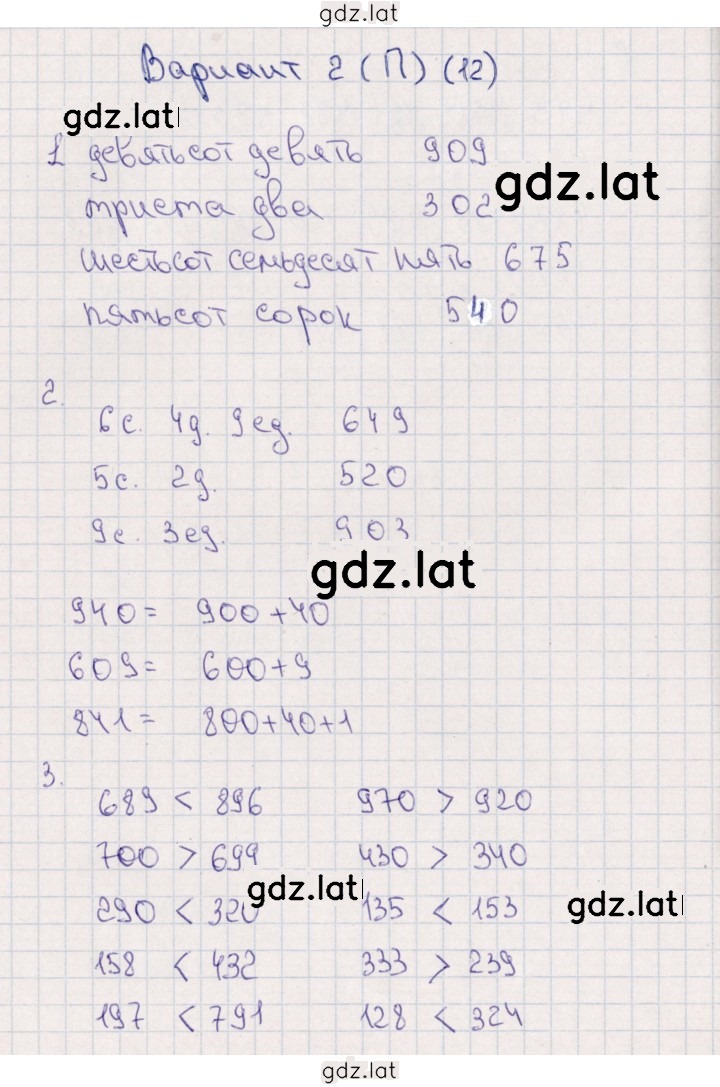 gdz.lat
Вариант 2 (П) (12)
gdz.lat
1 девятьсот девять 909
gdz.lat
триста два 302
шестьсот семьдесят пять 675
пятьсот сорок 540
2.
6с. 4д. 9ед. 649
5с. 2д. 520
9с. 3ед. 903
gdz.lat
940 = 900+40
609 = 600+9
841 = 800+40+1
3.
689 < 896 970 > 920
700 > 699 430 > 340
gdz.lat
290 < 320 135 < 153
gdz.lat
158 < 432 333 > 239
197 < 791 128 < 324
gdz.lat